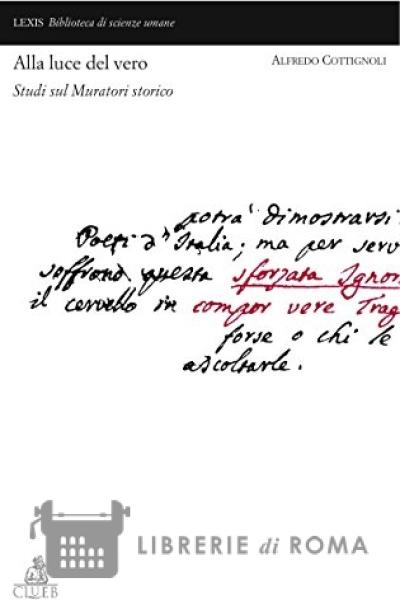 LEXIS Biblioteca di scienze umane
Alla luce del vero
ALFREDO COTTIGNOLI
Studi sul Muratori storico
potrà dimostrarsi
Poeti d'Italia; ma per serv
soffrono questa sforzata Ignor
il cervello in compor vere Trag
forse o chi le
ascoltarle.
LIBRERIE di ROMA
CLUEB